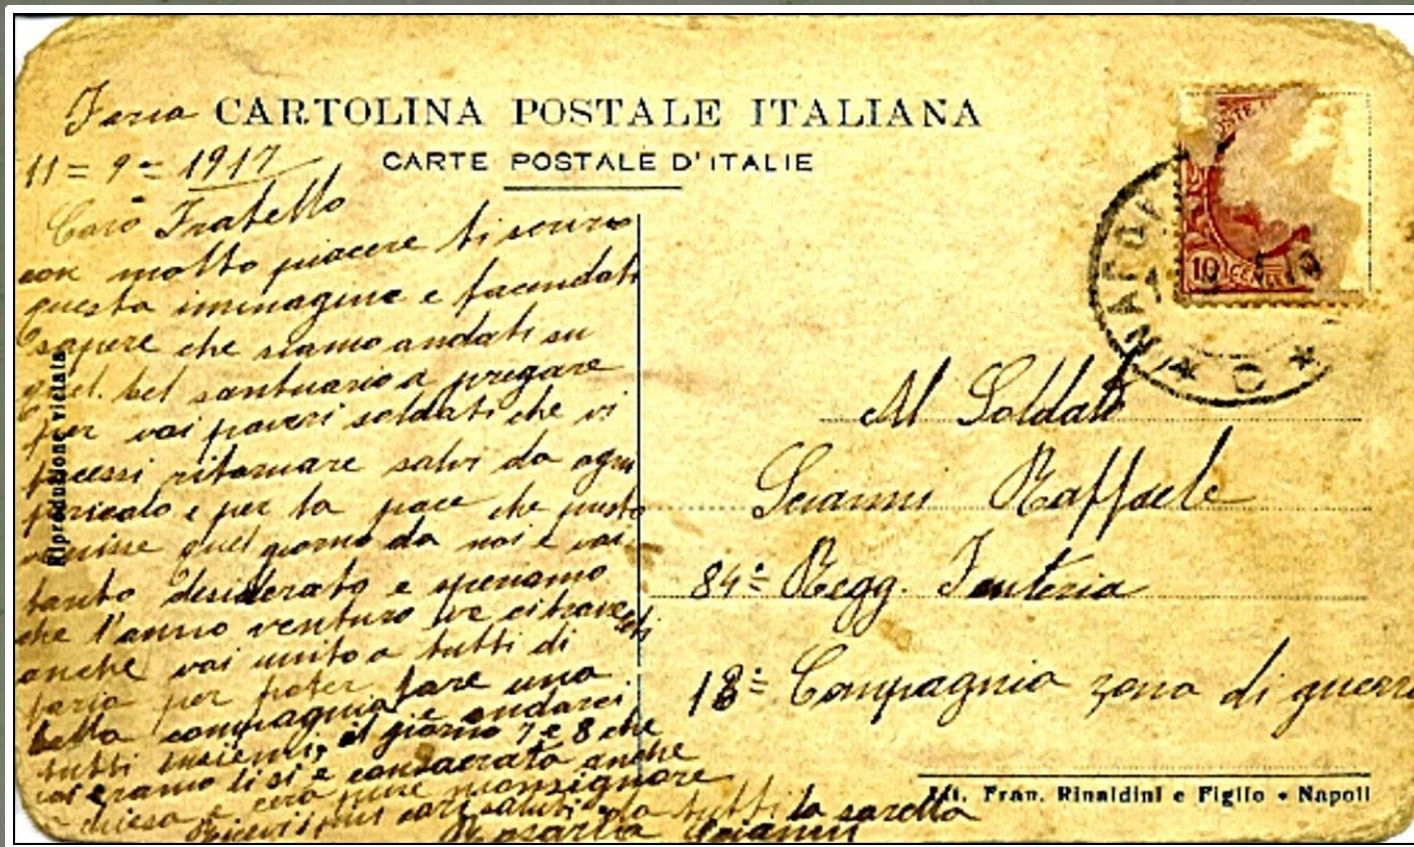 Foria CARTOLINA POSTALE ITALIANA
CARTE POSTALE D'ITALIE
11=9=1917
Caro Fratello
con molto piacere ti scrivo
questa immagine e facendoti
sapere che siamo andati su
quel bel santuario a pregare
per voi poveri soldati che vi
facessi ritornare salvi da ogni
pericolo e per la pace che presto
venisse quel giorno da noi e voi
tanto desiderato e speriamo
che l'anno venturo ve ci troveti
anche voi unito a tutti di
foria per poter fare una
bella compagnia e andarci
tutti insiemi, il giorno 7 e 8 che
noi eramo li si e consacrata anche
chiesa cera pure monsignore
Ricevi tuoi cari saluti da tutti la sorella
Rosaria Scianni
Riproduzione vietata
POSTE
10 CENTES
NAPOLI
Al Soldato
Scianni Raffaele
84= Regg. Fanteria
18= Compagnia zona di guerra
Lit. Fran. Rinaldini e Figlio • Napoli